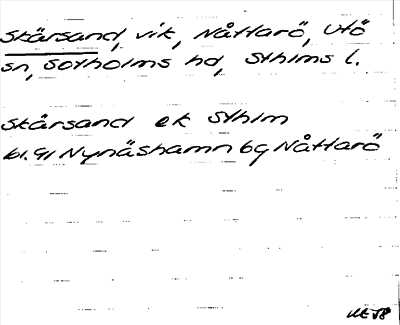 Skärsand, vik, Nåttarö, Utö
sn, Sotholms hd, Sthlms l.
Skärsand ek Sthlm
bl. 91 Nynäshamn 6g Nåttarö